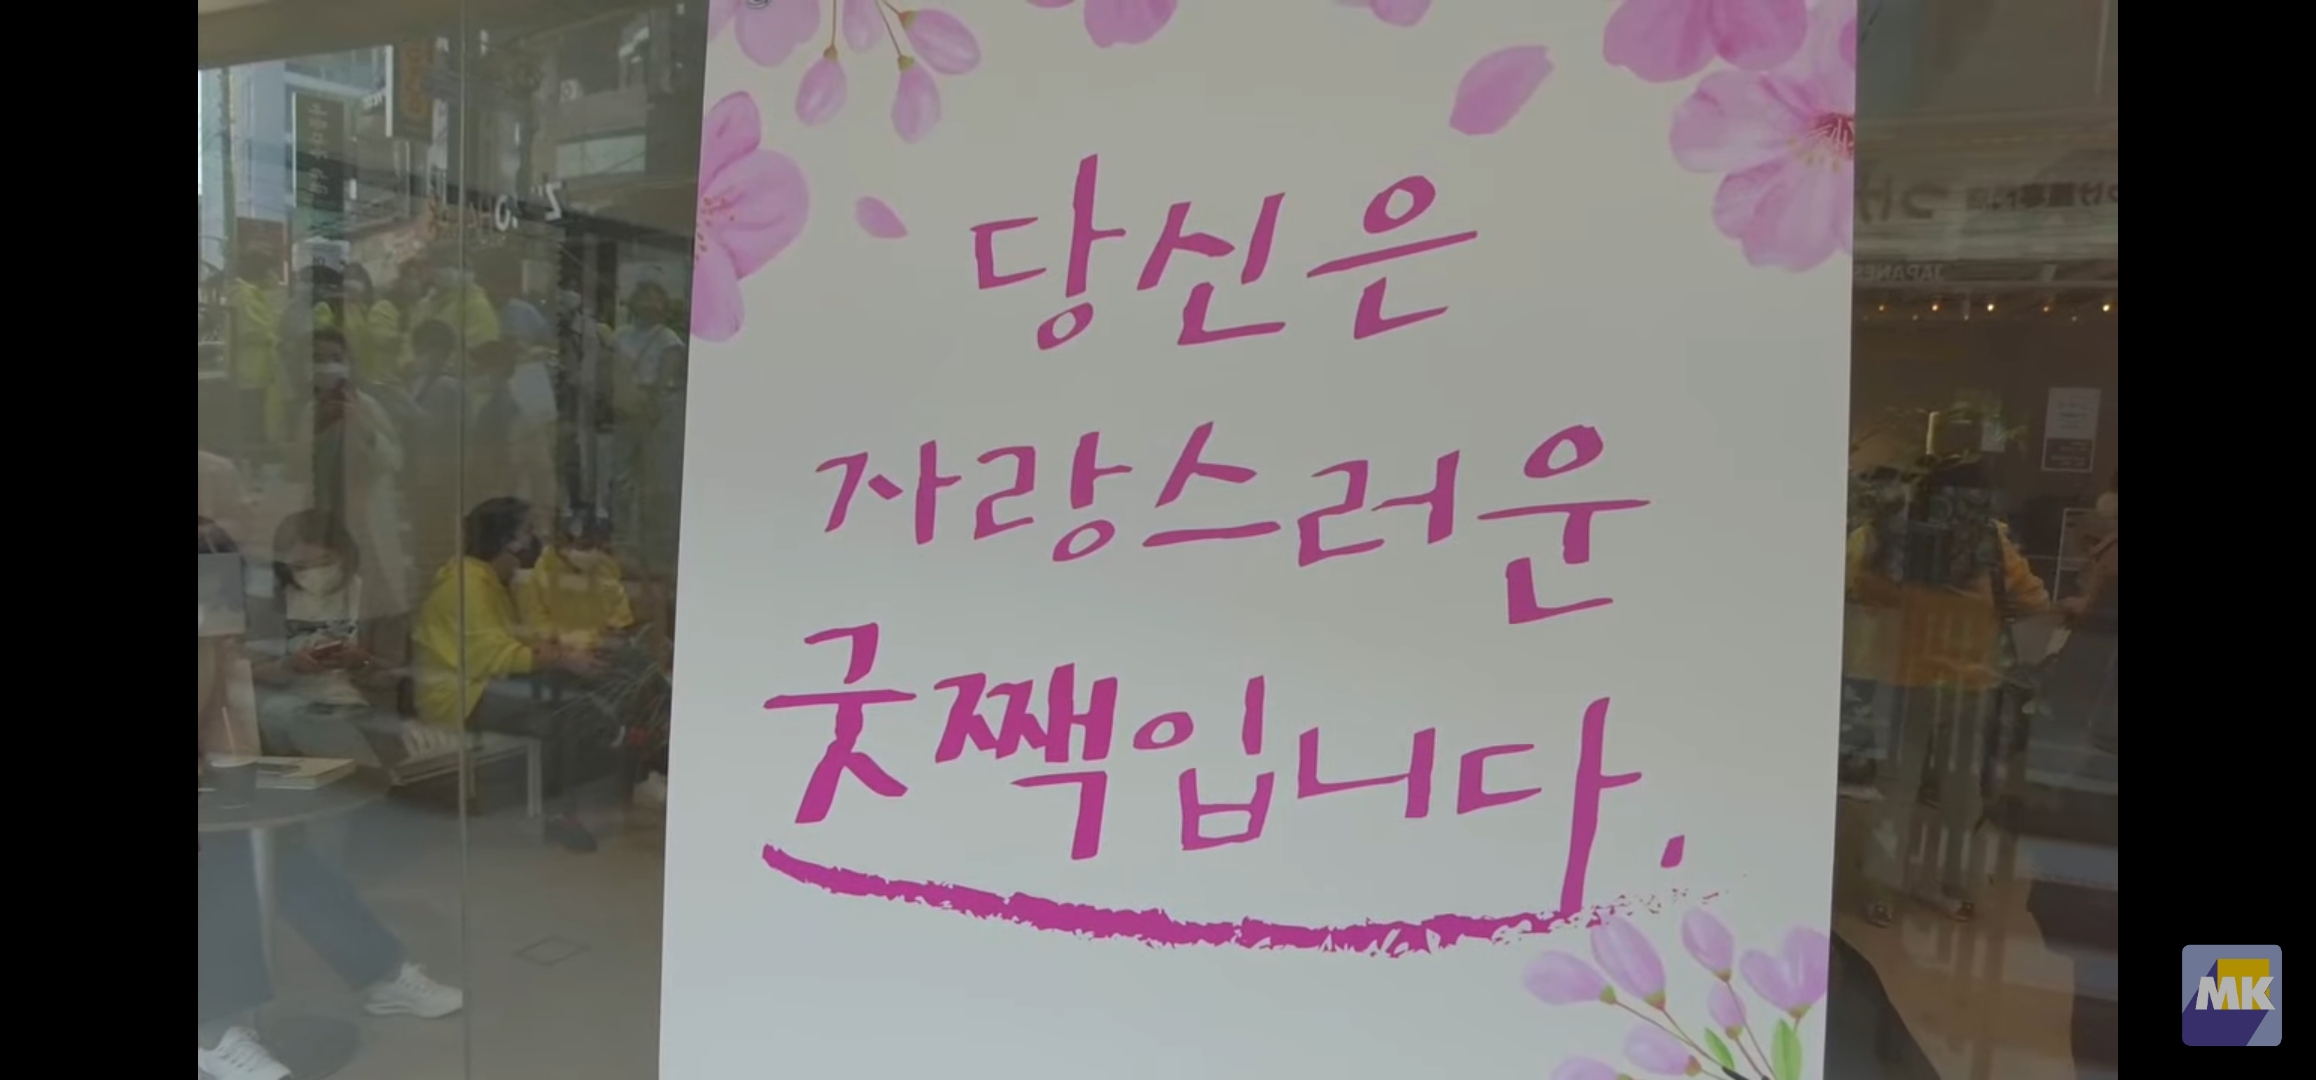 당신은
자랑스러운
굿짹입니다.
MK